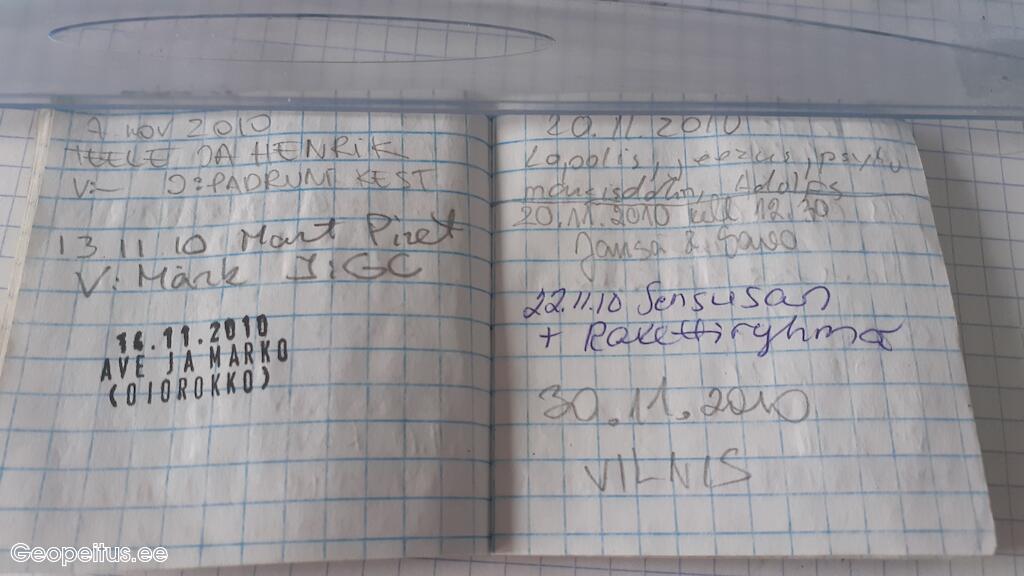 7 nov 2010
TEELE JA HENRIK
V:— J:PADRUNI KEST
13.11.10 Mart Piret
V: Märk J:GC
14.11.2010
AVE JA MARKO
(OIOROKKO)
20.11.2010
20.11.2010 kell 12.30
22.11.10 Sensusan
+ Rakettiryhmä
30.11.2010
VILNIS
Geopeitus.ee